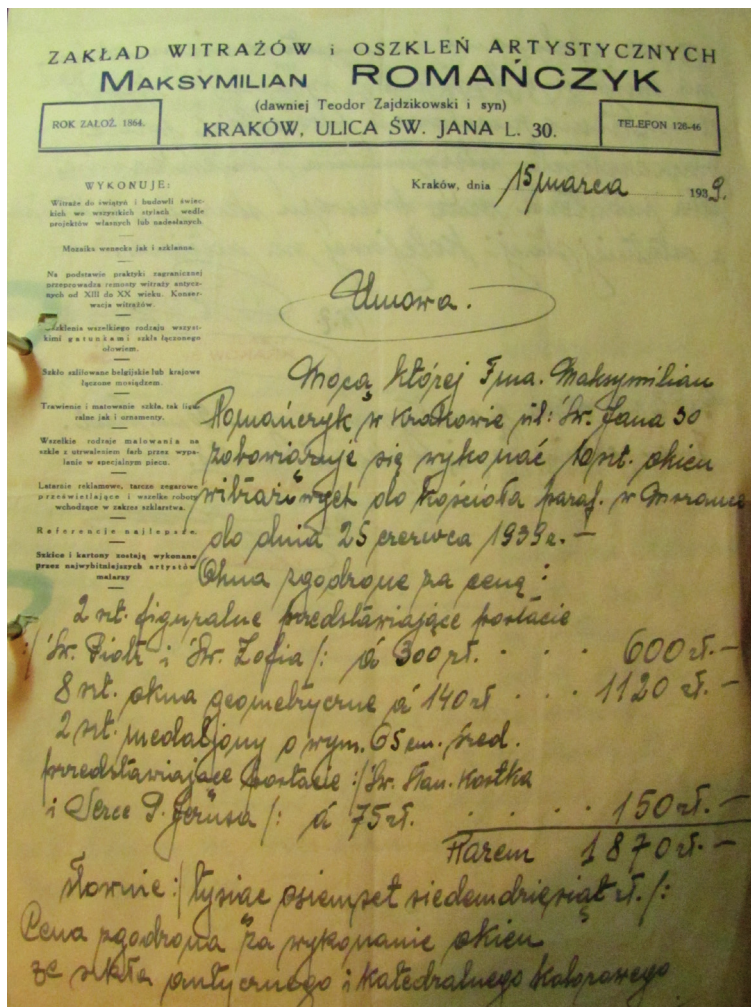 ZAKŁAD WITRAŻÓW i OSZKLEŃ ARTYSTYCZNYCH
MAKSYMILIAN ROMAŃCZYK
(dawniej Teodor Zajdzikowski i syn)
ROK ZAŁOŻ. 1864.
KRAKÓW, ULICA ŚW. JANA L. 30.
TELEFON 126-46
Kraków, dnia 15 marca 1939.
WYKONUJE:
Witraże do świątyń i budowli świec-
kich we wszystkich stylach wedle
projektów własnych lub nadesłanych.
Mozaika wenecka jak i szklanna.
Na podstawie praktyki zagranicznej
przeprowadza remonty witraży antycz-
nych od XIII do XX wieku. Konser-
wacja witrażów.
Oszklenia wszelkiego rodzaju wszyst-
kimi gatunkami szkła łączonego
ołowiem.
Szkło szlifowane belgijskie lub krajowe
łączone mosiądzem.
Trawienie i matowanie szkła, tak figu-
ralne jak i ornamenty.
Wszelkie rodzaje malowania na
szkle z utrwaleniem farb przez wypa-
lenie w specjalnym piecu.
Latarnie reklamowe, tarcze zegarowe
prześwietlające i wszelkie roboty
wchodzące w zakres szklarstwa.
Referencje najlepsze.
Szkice i kartony zostają wykonane
przez najwybitniejszych artystów
malarzy
Umowa.
Mocą której Fma. Maksymilian
Romańczyk w Krakowie ul: Św. Jana 30
zobowiązuje się wykonać 10 szt. okien
witrażowych do Kościoła paraf. w
do dnia 25 czerwca 1939 r. –
Okna zgodzone za cenę:
2 szt. figuralne przedstawiające postacie
:/ Św. Piotr i Św. Zofia /: á 300 zł. . . . 600 zł. –
8 szt. okna geometryczne á 140 zł . . . 1120 zł. –
2 szt. medaljony o wym. 65 cm. śred.
przedstawiające postacie :/ Św. Stan. Kostka
i Serce P. Jezusa /: á 75 zł. . . . . 150 zł. –
Razem 1870 zł. –
słownie :/ tysiąc osiemset siedemdziesiąt zł. /:
Cena zgodzona za wykonanie okien
ze szkła antycznego i katedralnego kolorowego